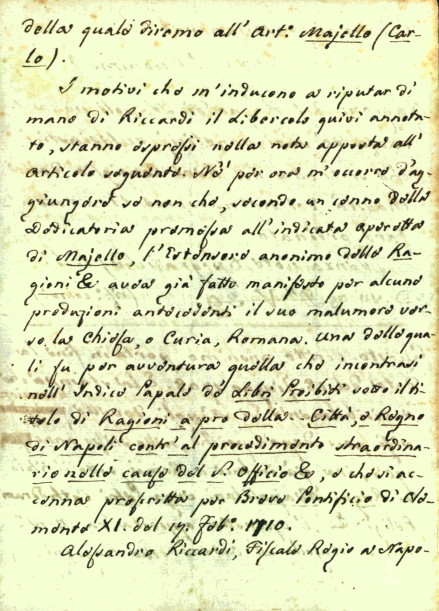 della quale diremo all' Art.º Majello (Car-
lo).
I motivi che m'inducono a riputar di
mano di Riccardi il Libercolo quivi annota-
to, stanno espressi nella nota apposta all'
Articolo seguente. Nè per ora m'occorre d'ag-
giungere se non che, secondo un cenno della
Dedicatoria premessa all'indicata operetta
di Majello, l'Estensore anonimo delle Ra-
gioni &c avea già fatto manifesto per alcune
produzioni antecedenti il suo malumore ver-
so la Chiesa, o Curia, Romana. Una delle qua-
li fu per avventura quella che incontrasi
nell' Indice Papale de' Libri Proibiti sotto il ti-
tolo di Ragioni a pro della Città, e Regno
di Napoli contr' al procedimento straordina-
rio nelle cause del S. Officio &c, e che si ac-
cenna proscritta per Breve Pontificio di Cle-
mente XI. del 17. Feb.º 1710.
Alessandro Riccardi, Fiscale Regio a Napo-